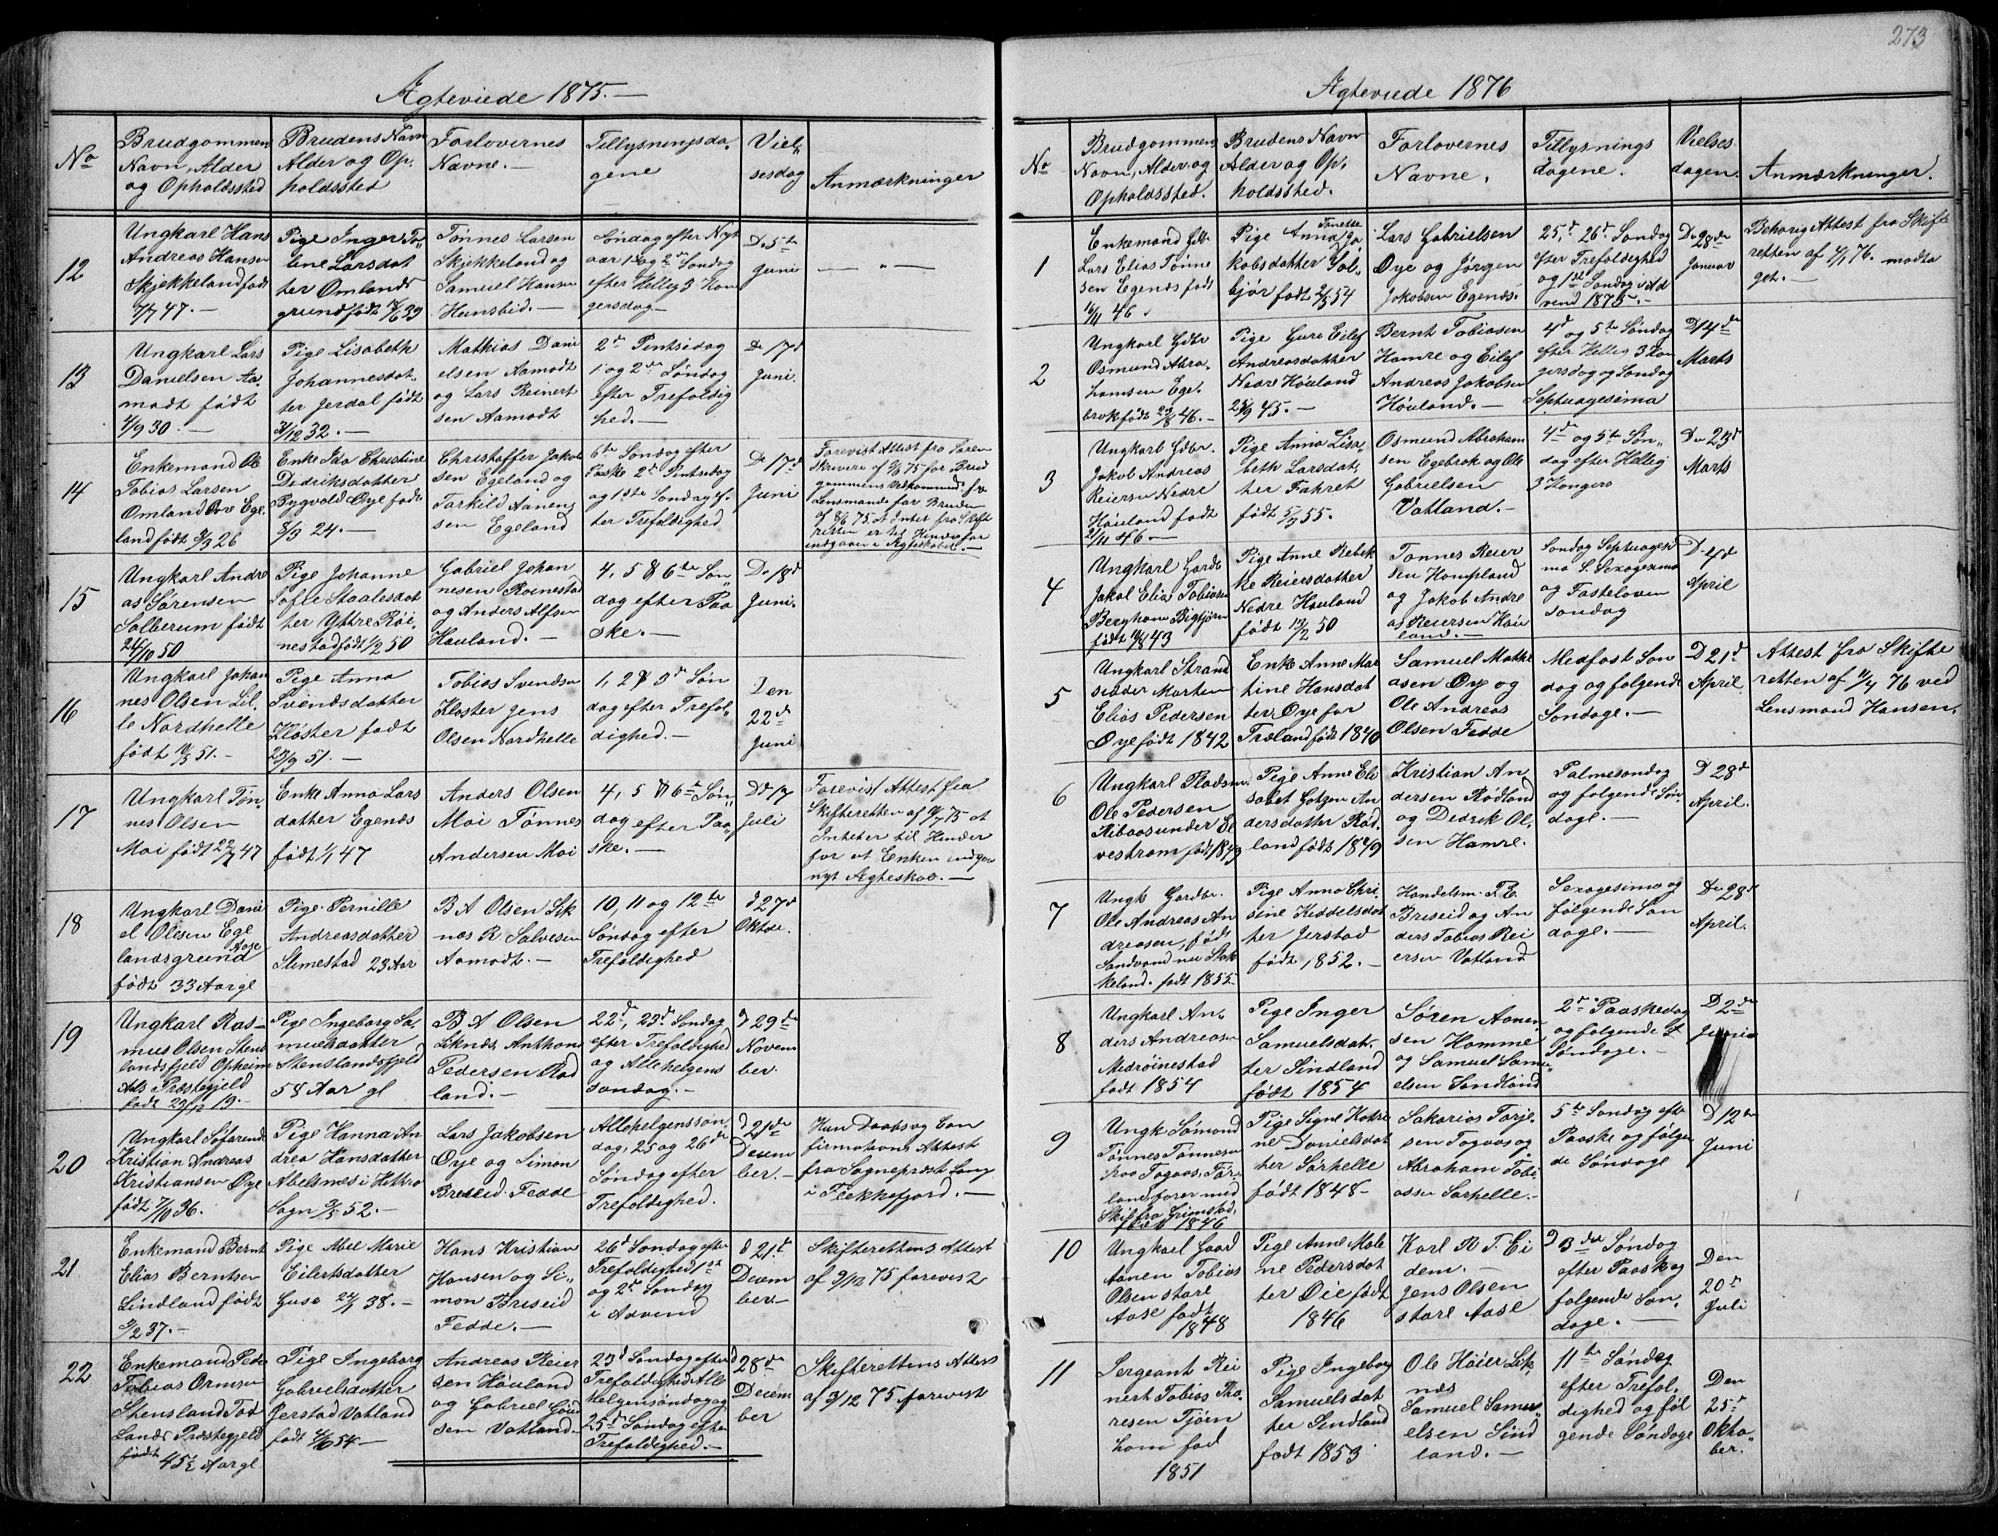 273
Ægteviede 1875.—
No
Brudgommens
Navn, Alder
og Opholdssted
Brudens Navn
Alder og Op-
holdssted
Forlovernes
Navne.—
Tillysningsda-
gene
Viel-
sesdag
Anmærkninger
12
Ungkarl Hans
Andreas Hansen
Skjekkeland født
47.—
Pige Inger To-
bine Larsdat
ter Omlands
grund født 39
Tønnes Larsen
Skjekkeland og
Samuel Hansen
Hunsbid.—
Søndag efter Nyt
aar 1ste og 2den Søndag
efter Hellig 3 Kon
gersdag.—
D. 5te
Juni
— " —
13
Ungkarl Lars
Danielsen Aa-
modt født
1/9 30.—
Pige Lisabeth
Johannesdat-
ter Jerdal født
/12 32.—
Mathias Dani
elsen Aamodt
og Lars Reinert
sen Aamodt
2den Pintsedag
1 og 2den Søndag
efter Trefoldig
hed.—
D. 17d
Juni.
14
Enkemand Ole
Tobias Larsen
Omland Øvre Ege-
land født 9/3 26
Enke Ida Christine
Didriksdatter
Bygvold Øye født
8/3 24.—
Christoffer Jakob
sen Egeland og
Torkild Aanen-
sen Egeland
6te Søndag efter
Paaske 2den Pintsedag
og 1ste Søndag ef-
ter Trefoldighed
D. 17d
Juni
Forevist Attest fra Soren
Skriveren af 75 for Brud
gommens Vedkommende, fra
Lensmanden for Bruden
af 8/6 75 at Intet fra Skift
retten er til Hinder for
indgaaen i Ægteskabet.—
15
Ungkarl Andre
as Sørensen
Solberum født
24/10 50
Pige Johanne
Sofie Staalesdat
ter Yttre Røi-
nestad født 1/2 50
Gabriel Johan
nesen Roinestad
og Anders Alfsen
Houland.—
4, 5 & 6te Søn-
dag efter Paa
ske.—
D. 18d
Juni.
16
Ungkarl Johan
nes Olsen Lil-
le Nordhelle
født 51.—
Pige Anna
Svendsdatter
Kloster født
29/9 51.—
Tobias Svendsen
Kloster Jens
Olsen Nordhelle
1, 2 & 3d Søn
dag efter Trefol-
dighed.—
Den
22d
Juni
17
Ungkarl Tøn-
nes Olsen
Moi født 22/7 47
Enke Anna Lars
datter Egenes
født 1/1 47
Anders Olsen
Moi Tønnes
Andersen Moi
4, 5 & 6te Søn-
dag efter Paa-
ske.—
D. 17
Juli
Forevist Attest fra
Skifteretten af 75 at
Intet er til Hinder
for at Enken indgaar
nyt Ægteskab.—
18
Ungkarl Dani
el Olsen Ege
landsgrund
Aase
født 33 Aar gl
Pige Pernille
Andreasdatter
Stimestad 23 Aar
B A Olsen Lik
nes R. Salvesen
Aamodt.—
10, 11 og 12te
Søndag efter
Trefoldighed
d 27d
Oktbr.
19
Ungkarl Ras-
mus Olsen Stens
landsfjeld Opheim
Aas Præstegjeld
født 29/12 19.—
Pige Ingeborg Sa-
muelsdatter
Stenslandsfjeld
58 Aar gl
B A Olsen
Liknes, Anthon
Pedersen Rød
land.—
22de, 23d Søndag
efter Trefoldighed
og Allehelgens
søndag.—
D 29de
Novem
ber.
20
Ungkarl Søfarende
Kristian Andreas
Kristiansen Øye
født 7/10 36.
Pige Hanna An
drea Hansdatter
Abelsnes i Hittrø
Sogn 9/5 52.—
Lars Jakobsen
Øye og Simon
Breseid Fedde
Allehelgenssøn-
dag, 25 og 26de
Søndag efter
Trefoldighed.
d 21de
Decem
ber.—
Hun Daabs og Con
firmations Attest
fra Sogneprest Lang
i Flekkefjord.—
21
Enkemand Bernt
Elias Berntsen
Lindland født
9/2 37.—
Pige Abel Marie
Eilertsdatter
Guse 24/1 38.—
Hans Kristian
Hansen og Si-
mon Briseid
Fedde.—
26d Søndag efter
Trefoldighed 1ste
og 2den Søndag
i Advend
d 21d
Decem
ber.
Skifterettens Attest
af 9/12 75 forevist
22
Enkemand Peder
Tobias Ormsen
Stensland Tod
lands Præstegjeld
født
45 1/2 Aar gl
Pige Ingeborg
Gabrielsdatter
Jerstad Vatland
født 4/6 54.—
Andreas Reier
sen Høuland
og Gabriel
sen Vatland
23d Søndag efter
Trefoldighed Alle
helgensøndag og
25d Søndag efter
Trefoldighed.—
d 28de
Decem
ber
Skifterettens Attest
af 3/12 75 forevist
Ægteviede 1876
No
Brudgommens
Navn, Alder og
Opholdssted.
Brudens Navn
Alder og Op-
holdssted.
Forlovernes
Navne.
Tillysnings
dagene.
Vielses-
dagen.
Anmærkninger.
1
Enkemand
Lars Elias Tønne
sen Egenes født
46.
Pige Anna Tomine Ja-
kobsdatter Sol-
bjør født 2/5 54
Lars Gabrielsen
Øye og Jørgen
Jakobsen Egenes.
25, 26de Søndag
efter Trefoldighed
og 1ste Søndag i Ad
vend 1875.—
D. 28de
Januar
Behørig Attest fra Skifte
retten af 76. modta
get.—
2
Ungkarl Gdbr
Osmund Abra-
hamsen Ege-
brok født 29/8 46.—
Pige Guro Eilef
Andreasdatter
Nedre Høuland
25/9 45.—
Bernt Tobiasen
Hamre og Eilef
Andreas Jakobsen
Høuland.—
4d og 5te Søndag
efter Hellig 3 Kon
gersdag og Søndag
Septuagesima
D 14de
Marts
3
Ungkarl Gdbr
Jakob Andreas
Reiersen Nedre
Høuland født
21/11 46.—
Pige Anna Lisa-
beth Larsdat-
ter Fahret
født 5/7 55.
Osmund Abraham
sen Egebrok og Ole
Gabrielsen
Vatland.—
4de og 5te Søn-
dag efter Hellig
3 Kongers
D. 23d
Marts
4
Ungkarl Gordb
Jakob Elias Tobiasen
Berghom Bigtjørn
født 43
Pige Anne Rebek
ka Reiersdatter
Nedre Houland
født 19/2 50
Tønnes Reier
sen Kompland
og Jakob Andre
as Reiersen Høu
land.—
Søndag Septuagesi
ma S. Sexagesima
og Fastelavns
søndag
D. 4d
April
5
Ungkarl Strand
sidder Morten
Elias Pedersen
Øye født 1842
Enke Anne Mar
tine Hansdat
ter Øye før
Træland født 1840
Samuel Mathi
asen Øye og
Ole Andreas
Olsen Fedde
Midfaste Søn
dag og følgende
Søndage.—
D 21d
April
Attest fra Skifte
retten af /4 76 ved
Lensmand Hansen.
6
Ungkarl Pladsm
Ole Pedersen
Ribaas under El
vestrøm født 1843
Pige Anne Eli
sabet An
dersdatter Rød-
land født 1849
Kristian An
dersen Rødland
og Didrik Ol-
sen Hamre.
Palmesøndag
og følgende Søn-
dage.—
D 28d
April.
7
Ungk. Gordbr.
Ole Andreas An
dreasen, født
Sandvand nu Stok
keland. født 1855
Pige Anna Chri
stine Kiddelsdat
ter Jerstad
født 1852.—
Handelsm.
Briseid og An
ders Tobias Rei
ersen Vatland
Sexagesima og
følgende Søn
dage.—
D. 28d
April.
8
Ungkarl An-
ders Andreasen
Midrøinestad
født 1854
Pige Inger
Samuelsdat-
ter Sindland
født 1854
Søren Aanen
sen Homme
og Samuel Samu-
elsen Sindland
2den Paaskedag
og følgende 2
Søndage.—
D 2den
Junio
9
Ungk Sømand
Tønnes Tønnesen
fra Fogaas, Før-
land farer med
Skib fra Grimstad,
født 1846
Pige Signe Kathri
ne Danielsdat
ter Sørhelle
født 1848—
Sakarias Torje-
sen Fogaas og
Abraham Tobi-
assen Sørhelle.—
5te Søndag eft-
Paaske og følgen
de Søndage
D 12te
Juni
10
Ungkarl Gaard
Aanen Tobias
Olsen store
Aase født
1848
Pige Anne Male
ne Pedersdat
ter Øie født
1846
Karl R T. Ei
dem.—
Jens Olsen
store Aase
3die Søndag
efter Paaske og
følgende Søn
dage.—
Den
20d
Juli
11
Sergeant Rei
nert Tobias Tho-
resen Tjørn
hom fød
1851
Pige Ingeborg
Samuelsdat
ter Sindland
født 1853
Ole Høier Lik
næs
Samuel Samu-
elsen Sind
land.—
11te Søndag
efter Trefol-
dighed og føl
gende Søndage
Den
25d
Okto-
ber.